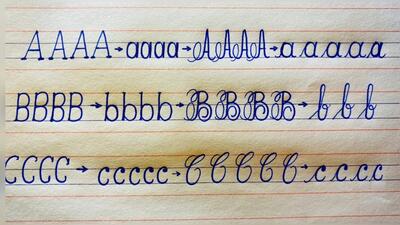 AAAA→aaaa→AAAA→aaaaa
BBBB→bbbb→BBBB→bbb
CCCC→ccccc→CCCCC→cccc